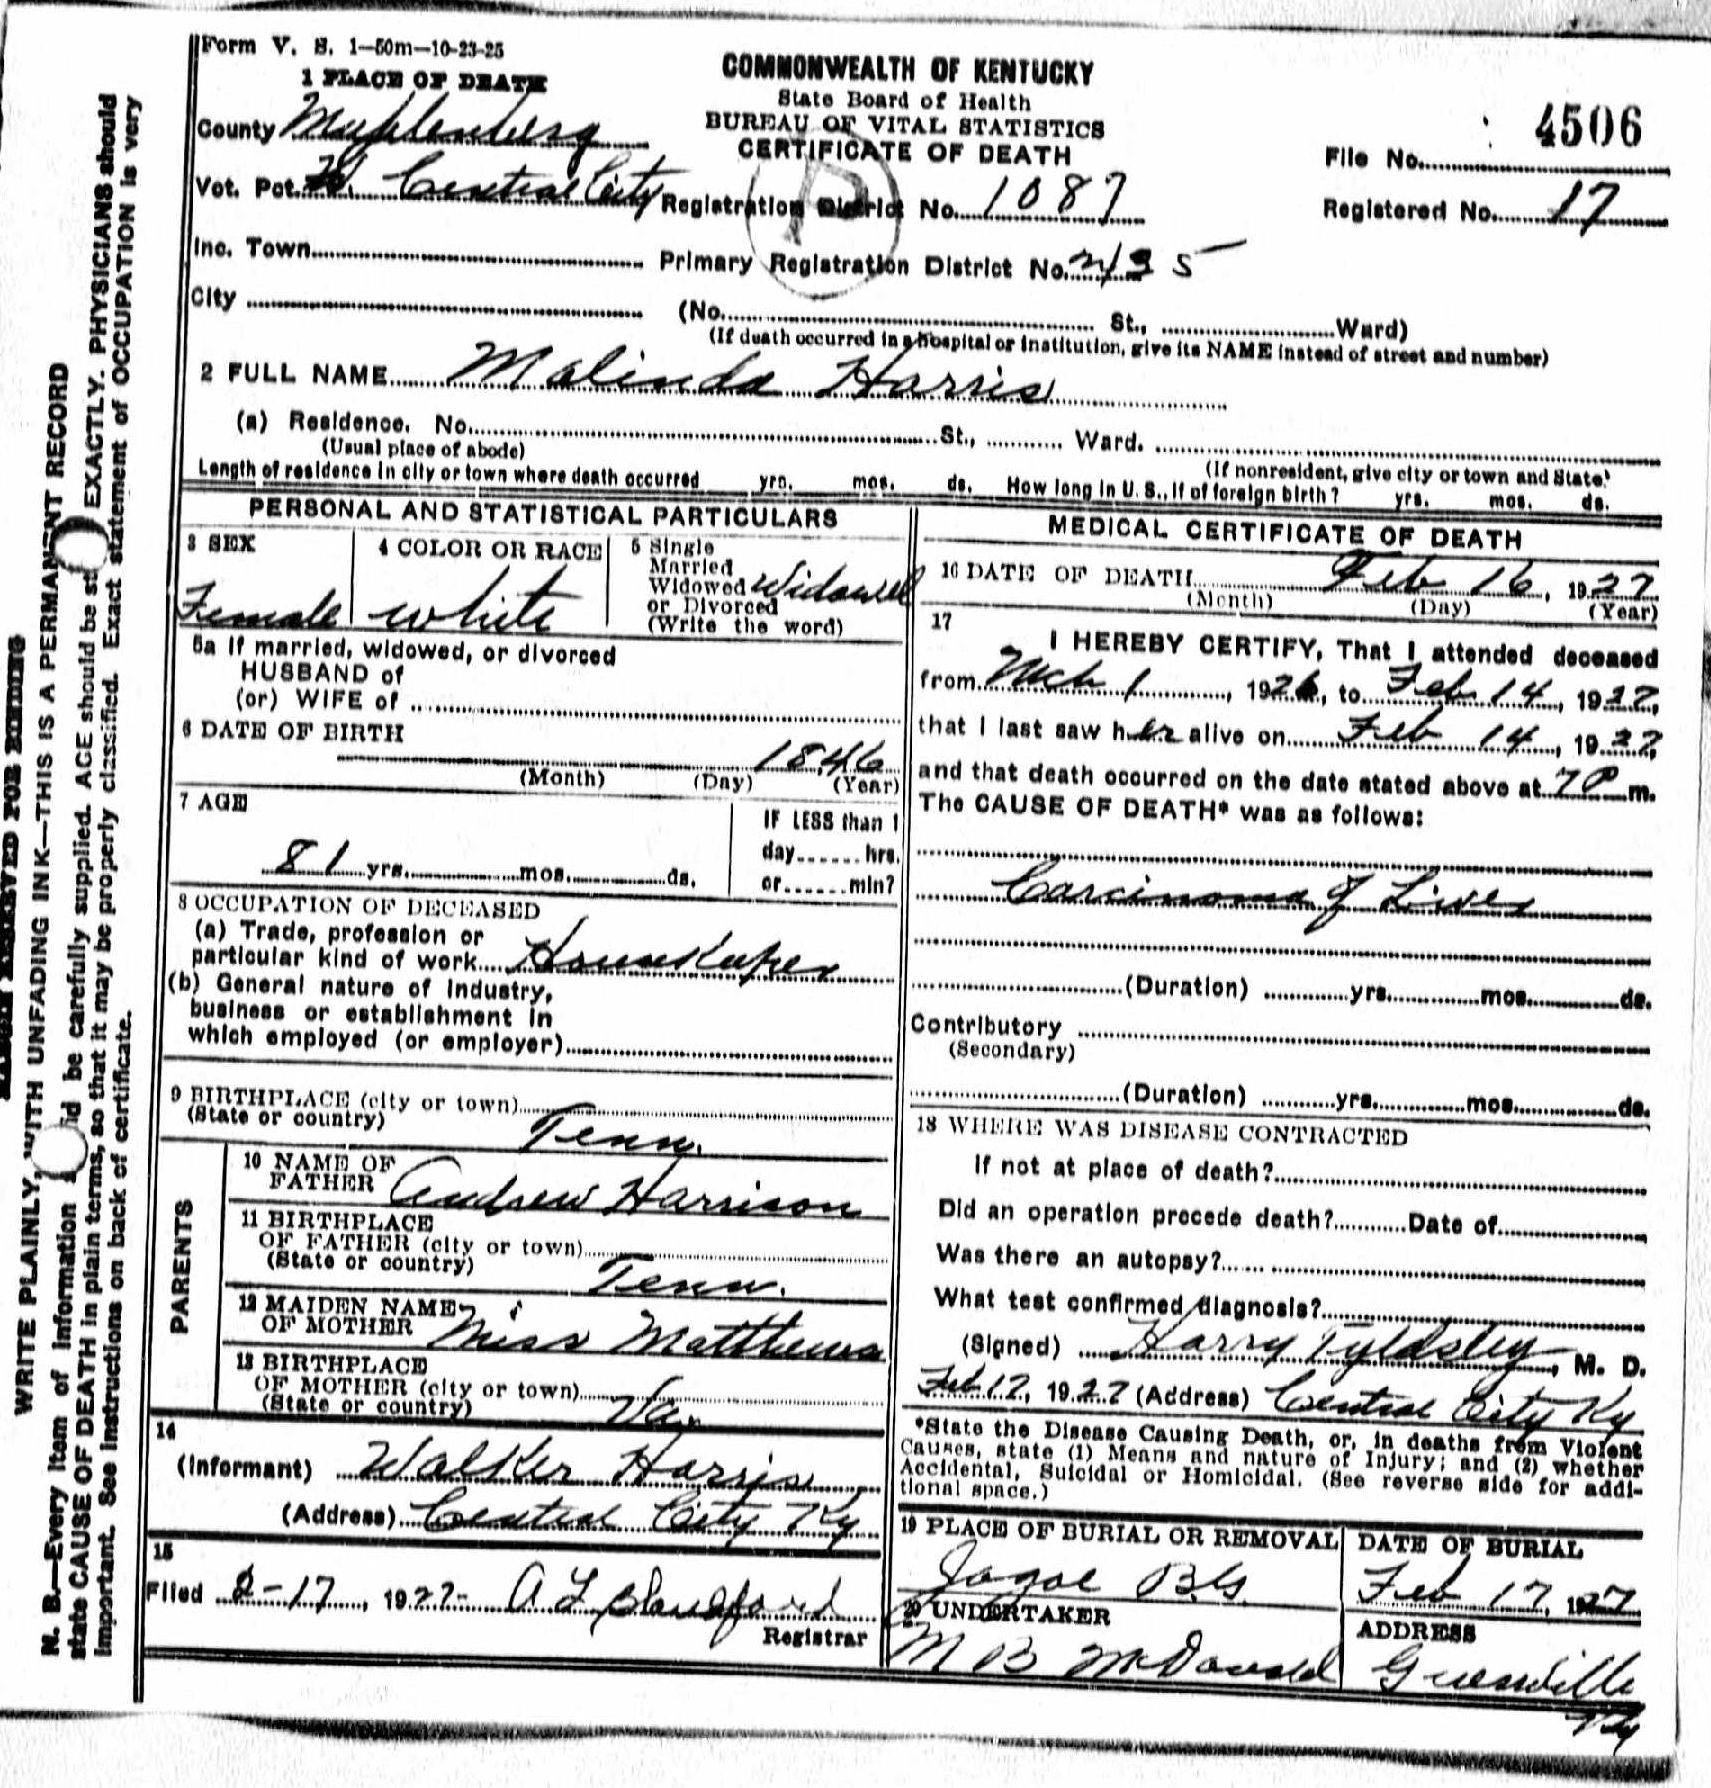 Form V. S. 1—50m—10-23-25
1 PLACE OF DEATH
COMMONWEALTH OF KENTUCKY
State Board of Health
BUREAU OF VITAL STATISTICS
CERTIFICATE OF DEATH
County Muhlenberg
File No. 4506
Vot. Pct. Central City Registration District No. 1087
Registered No. 17
Inc. Town Primary Registration District No. 2135
City (No. St., Ward)
(If death occurred in a hospital or institution, give its NAME instead of street and number)
2 FULL NAME Malinda Harris
(a) Residence. No. St., Ward.
(Usual place of abode) (If nonresident, give city or town and State)
Length of residence in city or town where death occurred yrs. mos. ds. How long in U. S., if of foreign birth? yrs. mos. ds.
PERSONAL AND STATISTICAL PARTICULARS
3 SEX
Female
4 COLOR OR RACE
white
5 Single
Married
Widowed
or Divorced
(Write the word)
Widowed
5a If married, widowed, or divorced
HUSBAND of
(or) WIFE of
6 DATE OF BIRTH
1846
(Month) (Day) (Year)
7 AGE
81 yrs. mos. ds.
IF LESS than 1
day hrs.
or min?
8 OCCUPATION OF DECEASED
(a) Trade, profession or
particular kind of work Housekeeper
(b) General nature of industry,
business or establishment in
which employed (or employer)
9 BIRTHPLACE (city or town)
(State or country) Tenn.
PARENTS
10 NAME OF
FATHER Andrew Harrison
11 BIRTHPLACE
OF FATHER (city or town)
(State or country) Tenn.
12 MAIDEN NAME
OF MOTHER Miss Matthews
13 BIRTHPLACE
OF MOTHER (city or town)
(State or country) Va.
14
(Informant) Walker Harris
(Address) Central City Ky
15
Filed 2-17, 1927- A L Blandford
Registrar
MEDICAL CERTIFICATE OF DEATH
16 DATE OF DEATH Feb 16, 1927
(Month) (Day) (Year)
17
I HEREBY CERTIFY, That I attended deceased
from Mch 1, 1926, to Feb 14, 1927,
that I last saw her alive on Feb 14, 1927,
and that death occurred on the date stated above at 7 P m.
The CAUSE OF DEATH* was as follows:
Carcinoma of Liver
(Duration) yrs. mos. ds.
Contributory
(Secondary)
(Duration) yrs. mos. ds.
18 WHERE WAS DISEASE CONTRACTED
If not at place of death?
Did an operation precede death? Date of
Was there an autopsy?
What test confirmed diagnosis?
(Signed) Harry Tyldsley, M. D.
Feb 17, 1927 (Address) Central City Ky
*State the Disease Causing Death, or, in deaths from Violent
Causes, state (1) Means and nature of Injury; and (2) whether
Accidental, Suicidal or Homicidal. (See reverse side for addi-
tional space.)
19 PLACE OF BURIAL OR REMOVAL
DATE OF BURIAL
Feb 17, 1927
20 UNDERTAKER
M B McDonald
ADDRESS
Greenville
Ky
MARGIN RESERVED FOR BINDING
WRITE PLAINLY, WITH UNFADING INK—THIS IS A PERMANENT RECORD
N. B.—Every item of information should be carefully supplied. AGE should be stated EXACTLY. PHYSICIANS should
state CAUSE OF DEATH in plain terms, so that it may be properly classified. Exact statement of OCCUPATION is very
important. See instructions on back of certificate.